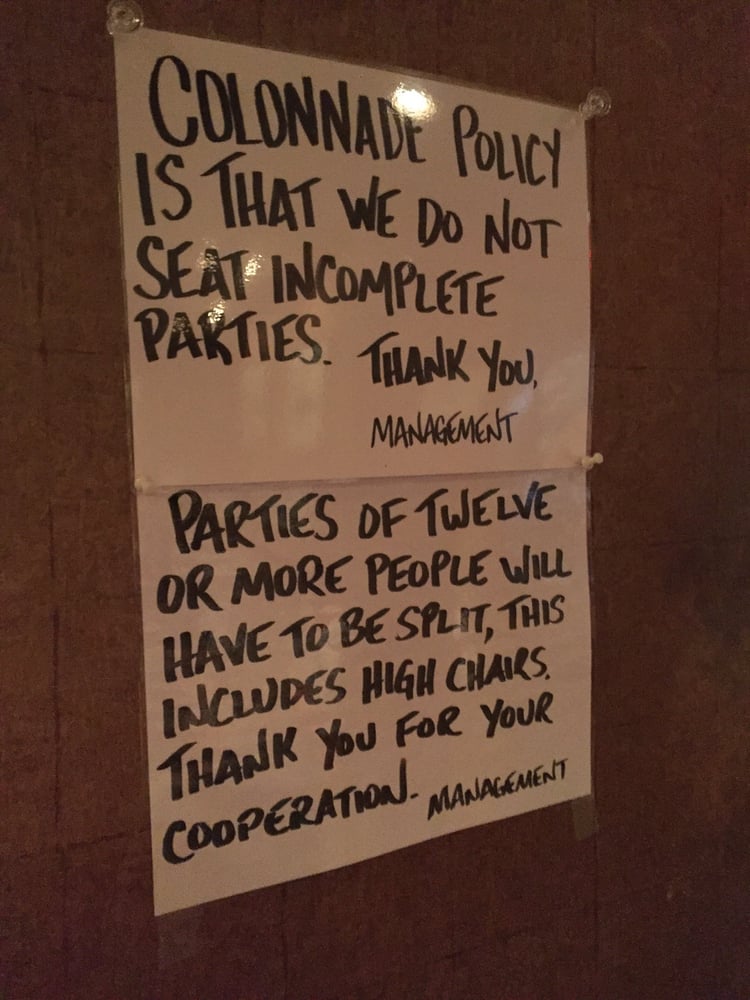 COLONNADE POLICY
IS THAT WE DO NOT
SEAT INCOMPLETE
PARTIES. THANK YOU,
MANAGEMENT
PARTIES OF TWELVE
OR MORE PEOPLE WILL
HAVE TO BE SPLIT, THIS
INCLUDES HIGH CHAIRS.
THANK YOU FOR YOUR
COOPERATION. MANAGEMENT